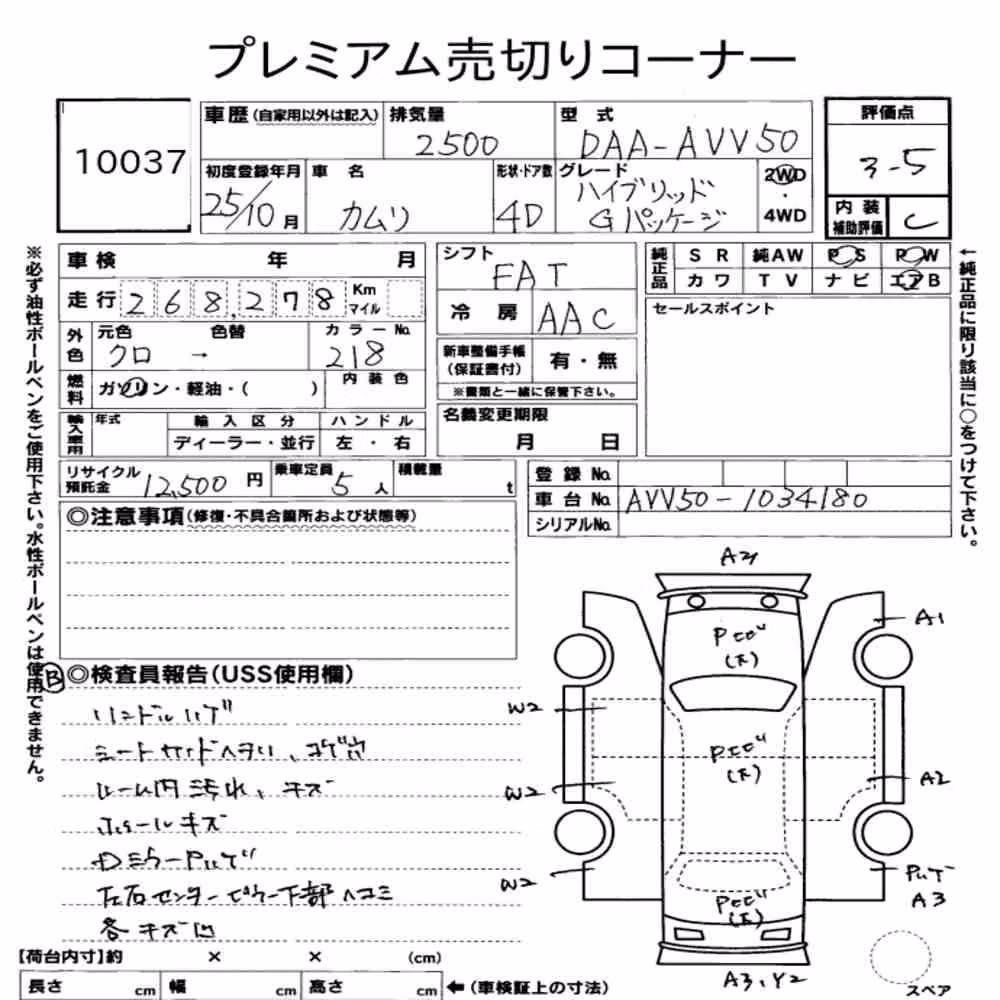 プレミアム売切りコーナー
10037
車歴(自家用以外は記入)
排気量
2500
型式
DAA-AVV50
評価点
3-5
内装補助評価
C
初度登録年月
25/10月
車名
カムリ
形状・ドア数
4D
グレード
ハイブリッド
Gパッケージ
2WD
・
4WD
車検 年 月
走行 268,278 Km マイル
外色
元色 色替
クロ →
カラーNo.
218
燃料
ガソリン・軽油・( )
内装色
輸入車用
年式
輸入区分
ディーラー・並行
ハンドル
左・右
シフト
FAT
冷房
AAC
新車整備手帳(保証書付)
有・無
※書類と一緒に保管下さい。
名義変更期限
月 日
純正品
SR 純AW PS PW
カワ TV ナビ エアB
セールスポイント
←純正品に限り該当に○をつけて下さい。
※必ず油性ボールペンをご使用下さい。水性ボールペンは使用できません。
リサイクル預託金
12,500円
乗車定員
5人
積載量
t
登録No.
車台No.
AVV50-1034180
シリアルNo.
◎注意事項(修復・不具合箇所および状態等)
B
◎検査員報告(USS使用欄)
ハンドルハゲ
シートサイドヘタリ、コゲ穴
ルーム内汚れ、キズ
ホイールキズ
左右センターピラー下部ヘコミ
各キズ凹
A1
W2
W2
A2
W2
A3
A3,Y2
(大)
(大)
(大)
スペア
【荷台内寸】約 × × (cm)
長さ cm 幅 cm 高さ cm ←(車検証上の寸法)